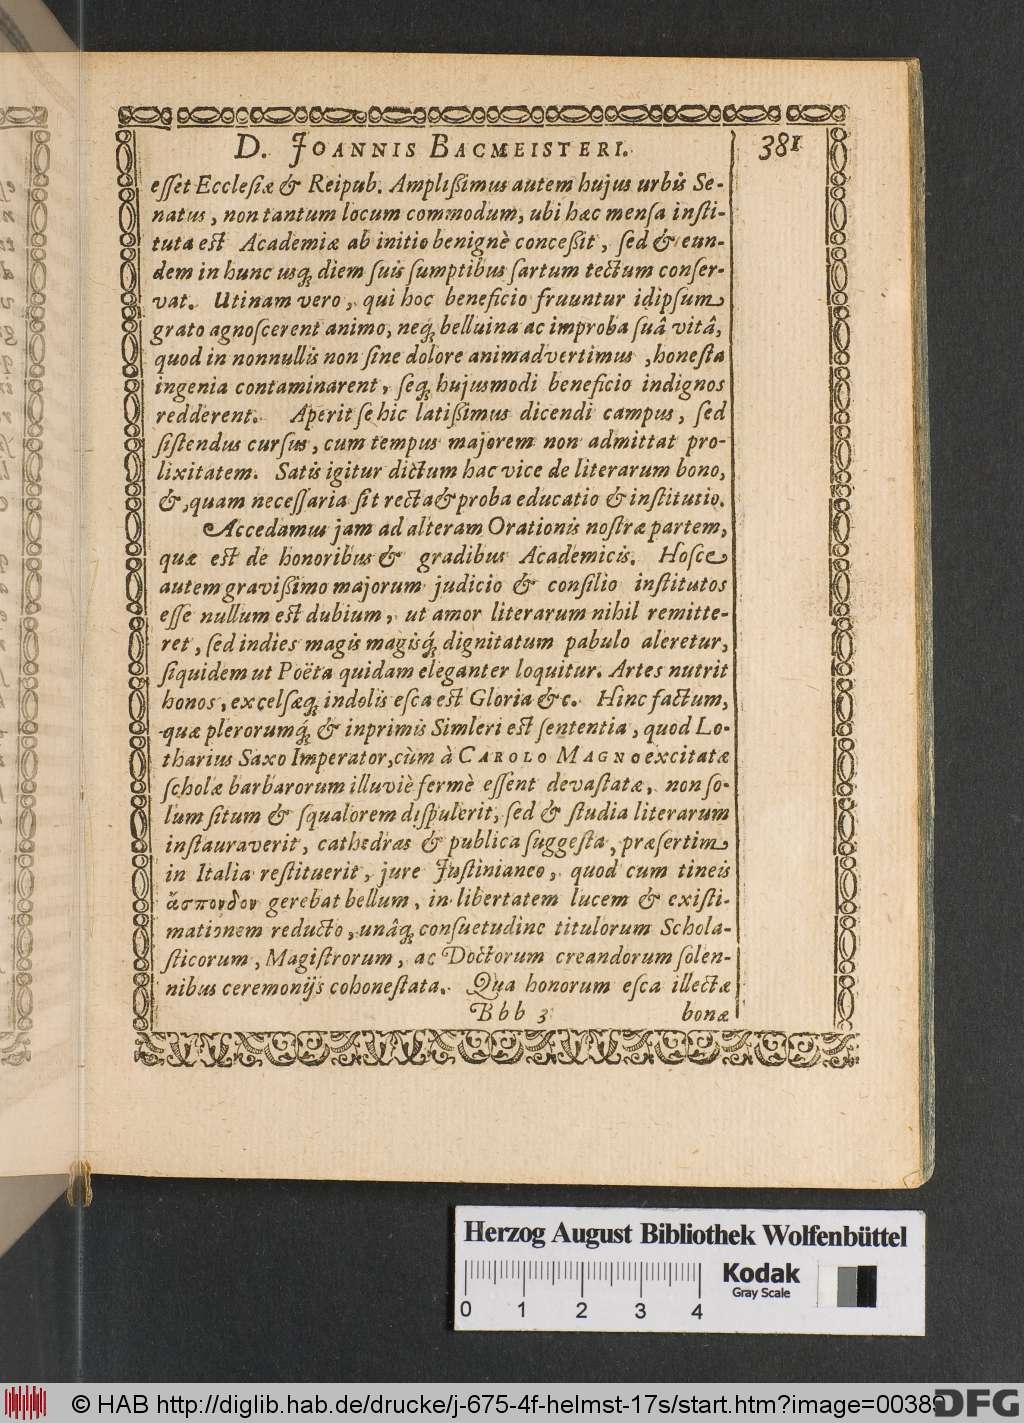 D. JOANNIS BACMEISTERI. 381
eſſet Eccleſiæ & Reipub. Ampliſſimus autem hujus urbis Se-
natus, non tantum locum commodum, ubi hæc menſa inſti-
tuta eſt Academiæ ab initio benignè conceßit, ſed & eun-
dem in hunc uſq́; diem ſuis ſumptibus ſartum tectum conſer-
vat. Utinam vero, qui hoc beneficio fruuntur idipſum
grato agnoſcerent animo, neq́; belluina ac improba ſuâ vitâ,
quod in nonnullis non ſine dolore animadvertimus, honeſta
ingenia contaminarent, ſeq́; hujusmodi beneficio indignos
redderent. Aperit ſe hic latißimus dicendi campus, ſed
ſiſtendus curſus, cum tempus majorem non admittat pro-
lixitatem. Satis igitur dictum hac vice de literarum bono,
&, quam neceſſaria ſit recta & proba educatio & inſtitutio.
Accedamus jam ad alteram Orationis noſtræ partem,
quæ eſt de honoribus & gradibus Academicis. Hoſce
autem gravißimo majorum judicio & conſilio inſtitutos
eſſe nullum eſt dubium, ut amor literarum nihil remitte-
ret, ſed indies magis magisq́; dignitatum pabulo aleretur,
ſiquidem ut Poëta quidam eleganter loquitur. Artes nutrit
honos, excelſæq́; indolis eſca eſt Gloria &c. Hinc factum,
quæ plerorumq́; & inprimis Simleri eſt ſententia, quod Lo-
tharius Saxo Imperator, cùm à CAROLO MAGNO excitatæ
ſcholæ barbarorum illuviè fermè eſſent devaſtatæ, non ſo-
lum ſitum & ſqualorem diſpulerit, ſed & ſtudia literarum
inſtauraverit, cathedras & publica ſuggeſta, præſertim
in Italia reſtituerit, jure Juſtinianeo, quod cum tineis
ἄσπονδον gerebat bellum, in libertatem lucem & exiſti-
mationem reducto, unâq́; conſuetudine titulorum Schola-
ſticorum, Magiſtrorum, ac Doctorum creandorum ſolen-
nibus ceremonijs cohoneſtata. Qua honorum eſca illectæ
Bbb 3 bonæ
Herzog August Bibliothek Wolfenbüttel
Kodak
Gray Scale
0 1 2 3 4
© HAB http://diglib.hab.de/drucke/j-675-4f-helmst-17s/start.htm?image=00389
DFG